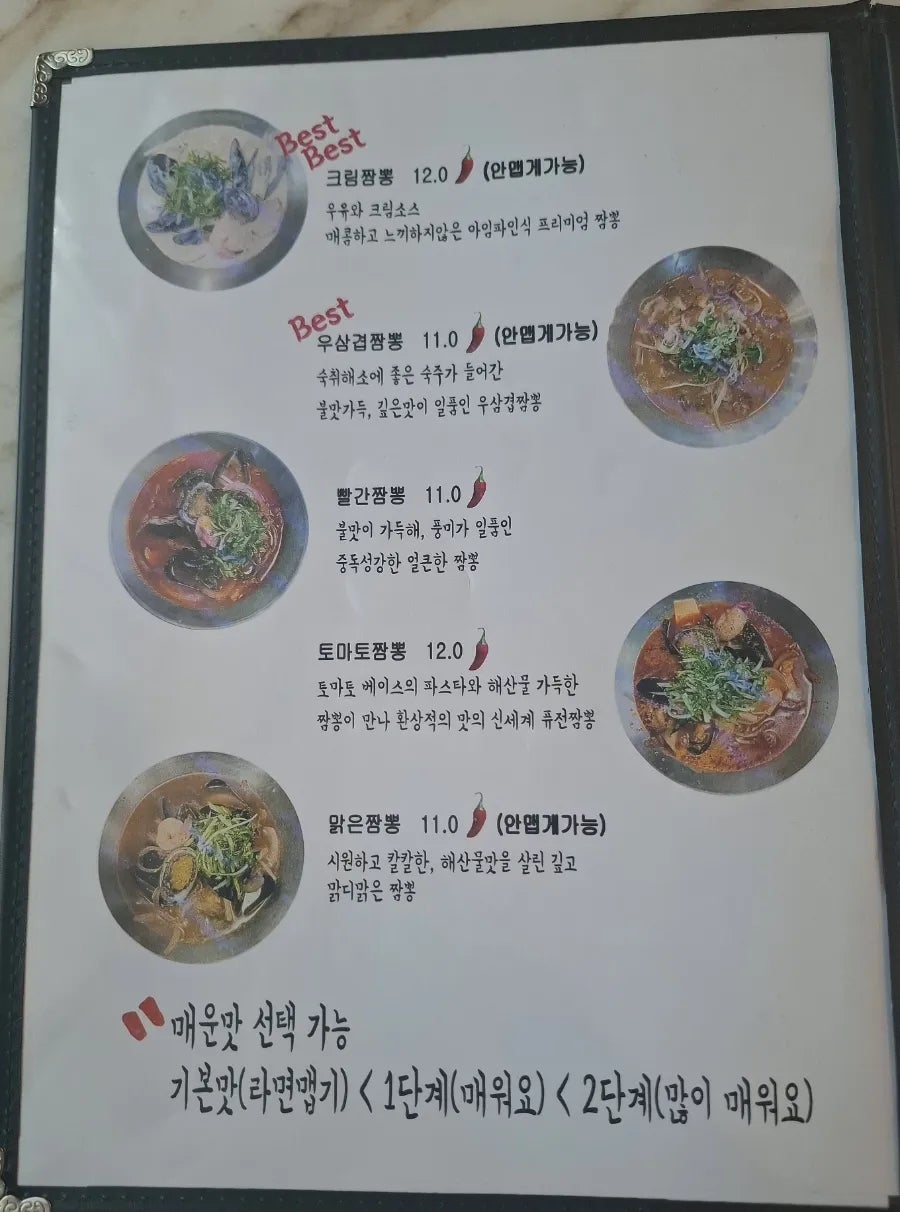 Best
Best
크림짬뽕 12.0 (안맵게가능)
우유와 크림소스
매콤하고 느끼하지않은 아임파인식 프리미엄 짬뽕
Best
우삼겹짬뽕 11.0 (안맵게가능)
숙취해소에 좋은 숙주가 들어간
불맛가득, 깊은맛이 일품인 우삼겹짬뽕
빨간짬뽕 11.0
불맛이 가득해, 풍미가 일품인
중독성강한 얼큰한 짬뽕
토마토짬뽕 12.0
토마토 베이스의 파스타와 해산물 가득한
짬뽕이 만나 환상적의 맛의 신세계 퓨전짬뽕
맑은짬뽕 11.0 (안맵게가능)
시원하고 칼칼한, 해산물맛을 살린 깊고
맑디맑은 짬뽕
매운맛 선택 가능
기본맛(라면맵기) < 1단계(매워요) < 2단계(많이 매워요)